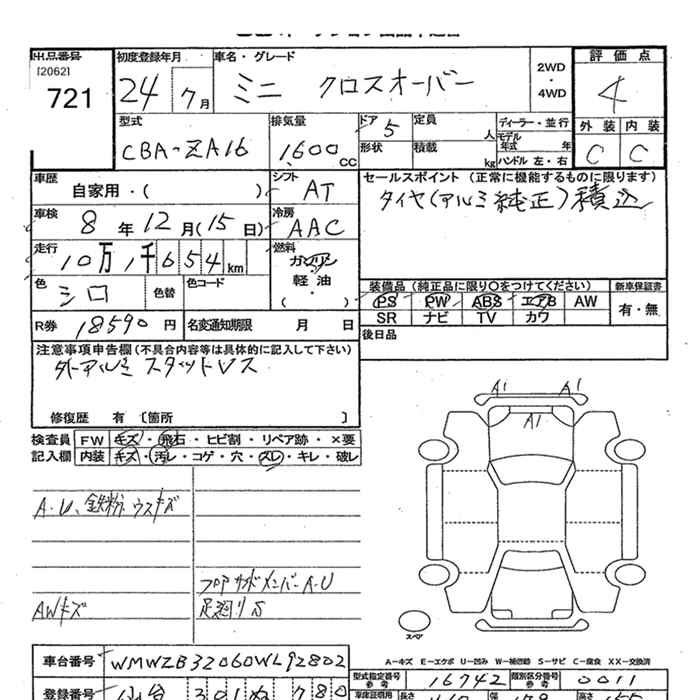 出品番号
[2062]
721
初度登録年月
24 7月
車名・グレード
ミニ クロスオーバー
2WD
・
4WD
評価点
4
外装 内装
C C
型式
CBA-ZA16
排気量
1,600 CC
ドア 5
形状
定員 人
積載 kg
ディーラー・並行
モデル年式 年
ハンドル 左・右
車歴
自家用・( )
シフト
AT
セールスポイント (正常に機能するものに限ります)
タイヤ(アルミ純正)積込
車検
8年12月(15日)
冷房
AAC
走行
10万1千654km
燃料
ガソリン
軽油
( )
色
シロ
色替
色コード
装備品 (純正品に限り○をつけてください)
PS PW ABS エアB AW
SR ナビ TV カワ
新車保証書
有・無
R券 18590円
名変通知期限 月 日
後日品
注意事項申告欄 (不具合内容等は具体的に記入して下さい)
外アルミ スタットレス
修復歴 有 〔箇所 〕
検査員記入欄
FW キズ・飛石・ヒビ割・リペア跡・×要
内装 キズ・汚レ・コゲ・穴・スレ・キレ・破レ
A1 A1
A1
A・U、鉄粉、ウスキズ
フロアサイドメンバーA・U
AWキズ
足廻りS
スペア
A-キズ E-エクボ U-凹み W-補修跡 S-サビ C-腐食 XX-交換済
車台番号 WMWZB32060WL92802
型式指定番号 参考 16742
類別区分番号 参考 0011
登録番号 仙台 301 ぬ 780
長さ
幅
高さ